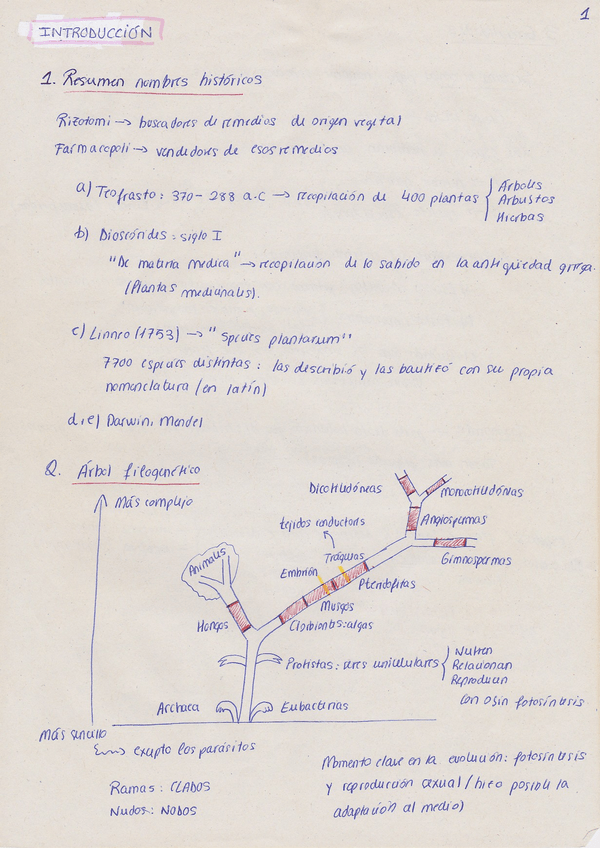 1
INTRODUCCIÓN
1. Resumen nombres históricos
Rizotomi → buscadores de remedios de origen vegetal
Farmacopoli → vendedores de esos remedios
a) Teofrasto: 370-288 a.C → recopilación de 400 plantas
Árboles
Arbustos
Hierbas
b) Dioscórides: siglo I
"De materia medica" → recopilación de lo sabido en la antigüedad griega.
(Plantas medicinales).
c) Linneo (1753) → "Species plantarum"
7700 especies distintas: las describió y las bautizó con su propia
nomenclatura (en latín)
d,e) Darwin, Mendel
2. Árbol filogenético
Más complejo
Dicotiledóneas
Monocotiledóneas
tejidos conductores
Angiospermas
Gimnospermas
Traqueas
Animales
Embrión
Pteridofitas
Musgos
Hongos
Clorobiontes: algas
Protistas: seres unicelulares
Nutren
Relacionan
Reproducen
con o sin fotosíntesis
Archaea
Eubacterias
Más sencillo
excepto los parásitos
Ramas: CLADOS
Nudos: NODOS
Momento clave en la evolución: fotosíntesis
y reproducción sexual (hizo posible la
adaptación al medio)